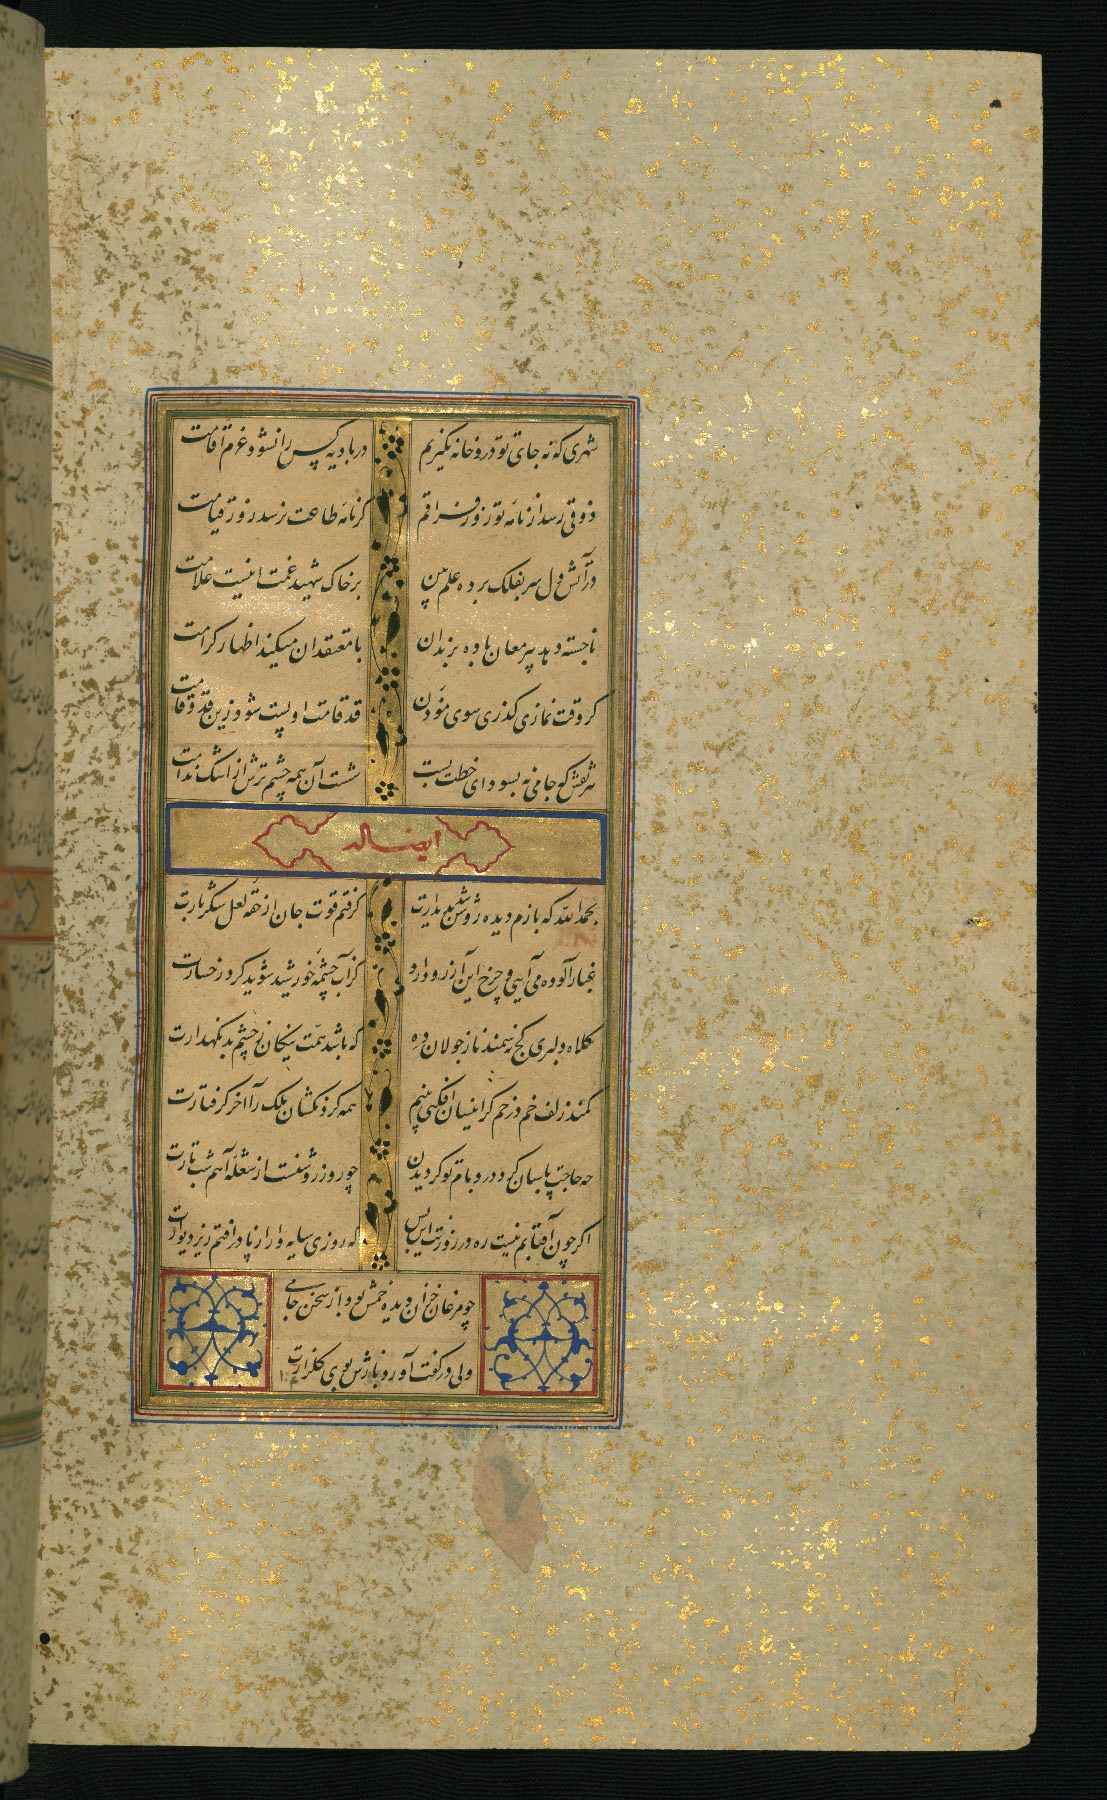 شهری که نه جای تو درو خانه نگیریم در بادیه کس را نشود عزم اقامت
ذوقی رسد از نامه تو روز فراقم کز نامه طاعت نرسد روز قیامت
در آتش دل سر بفلک برده علم بین بر خاک شهید غمت اینست علامت
ناجسته دهد پیر مغان باده برندان با معتقدان میکند اظهار کرامت
گر وقت نمازی گذری سوی مؤذن قد قامت او پست شود زین قد و قامت
هر نقش که جامی نه بسودای خطت بست شست آن همه چشم ترش از اشک ندامت
ایضا له
بحمدالله که بازم دیده روشن شد بدیدارت گرفتم قوت جان از حقه لعل شکربارت
غبارآلوده می‌آیی و چرخ این آرزو دارد کز آب چشمه خورشید شوید گرد رخسارت
کلاه دلبری کج نه سمند ناز جولان ده که باشد همت نیکان ز چشم بد نگهدارت
کمند زلف خم در خم گر اینسان افکنی بینم همه گردنکشان ملک را آخر گرفتارت
چه حاجت پاسبان گرد در و بام تو گردیدن چو روز روشنست از شعله آهم شب تارت
اگر چون آفتابم نیست ره در روزنت این بس که روزی سایه وار از پا درافتم زیر دیوارت
چو مرغان خزان دیده خمش بود از سخن جامی
ولی در گفت آورد بازش بوی گلزارت